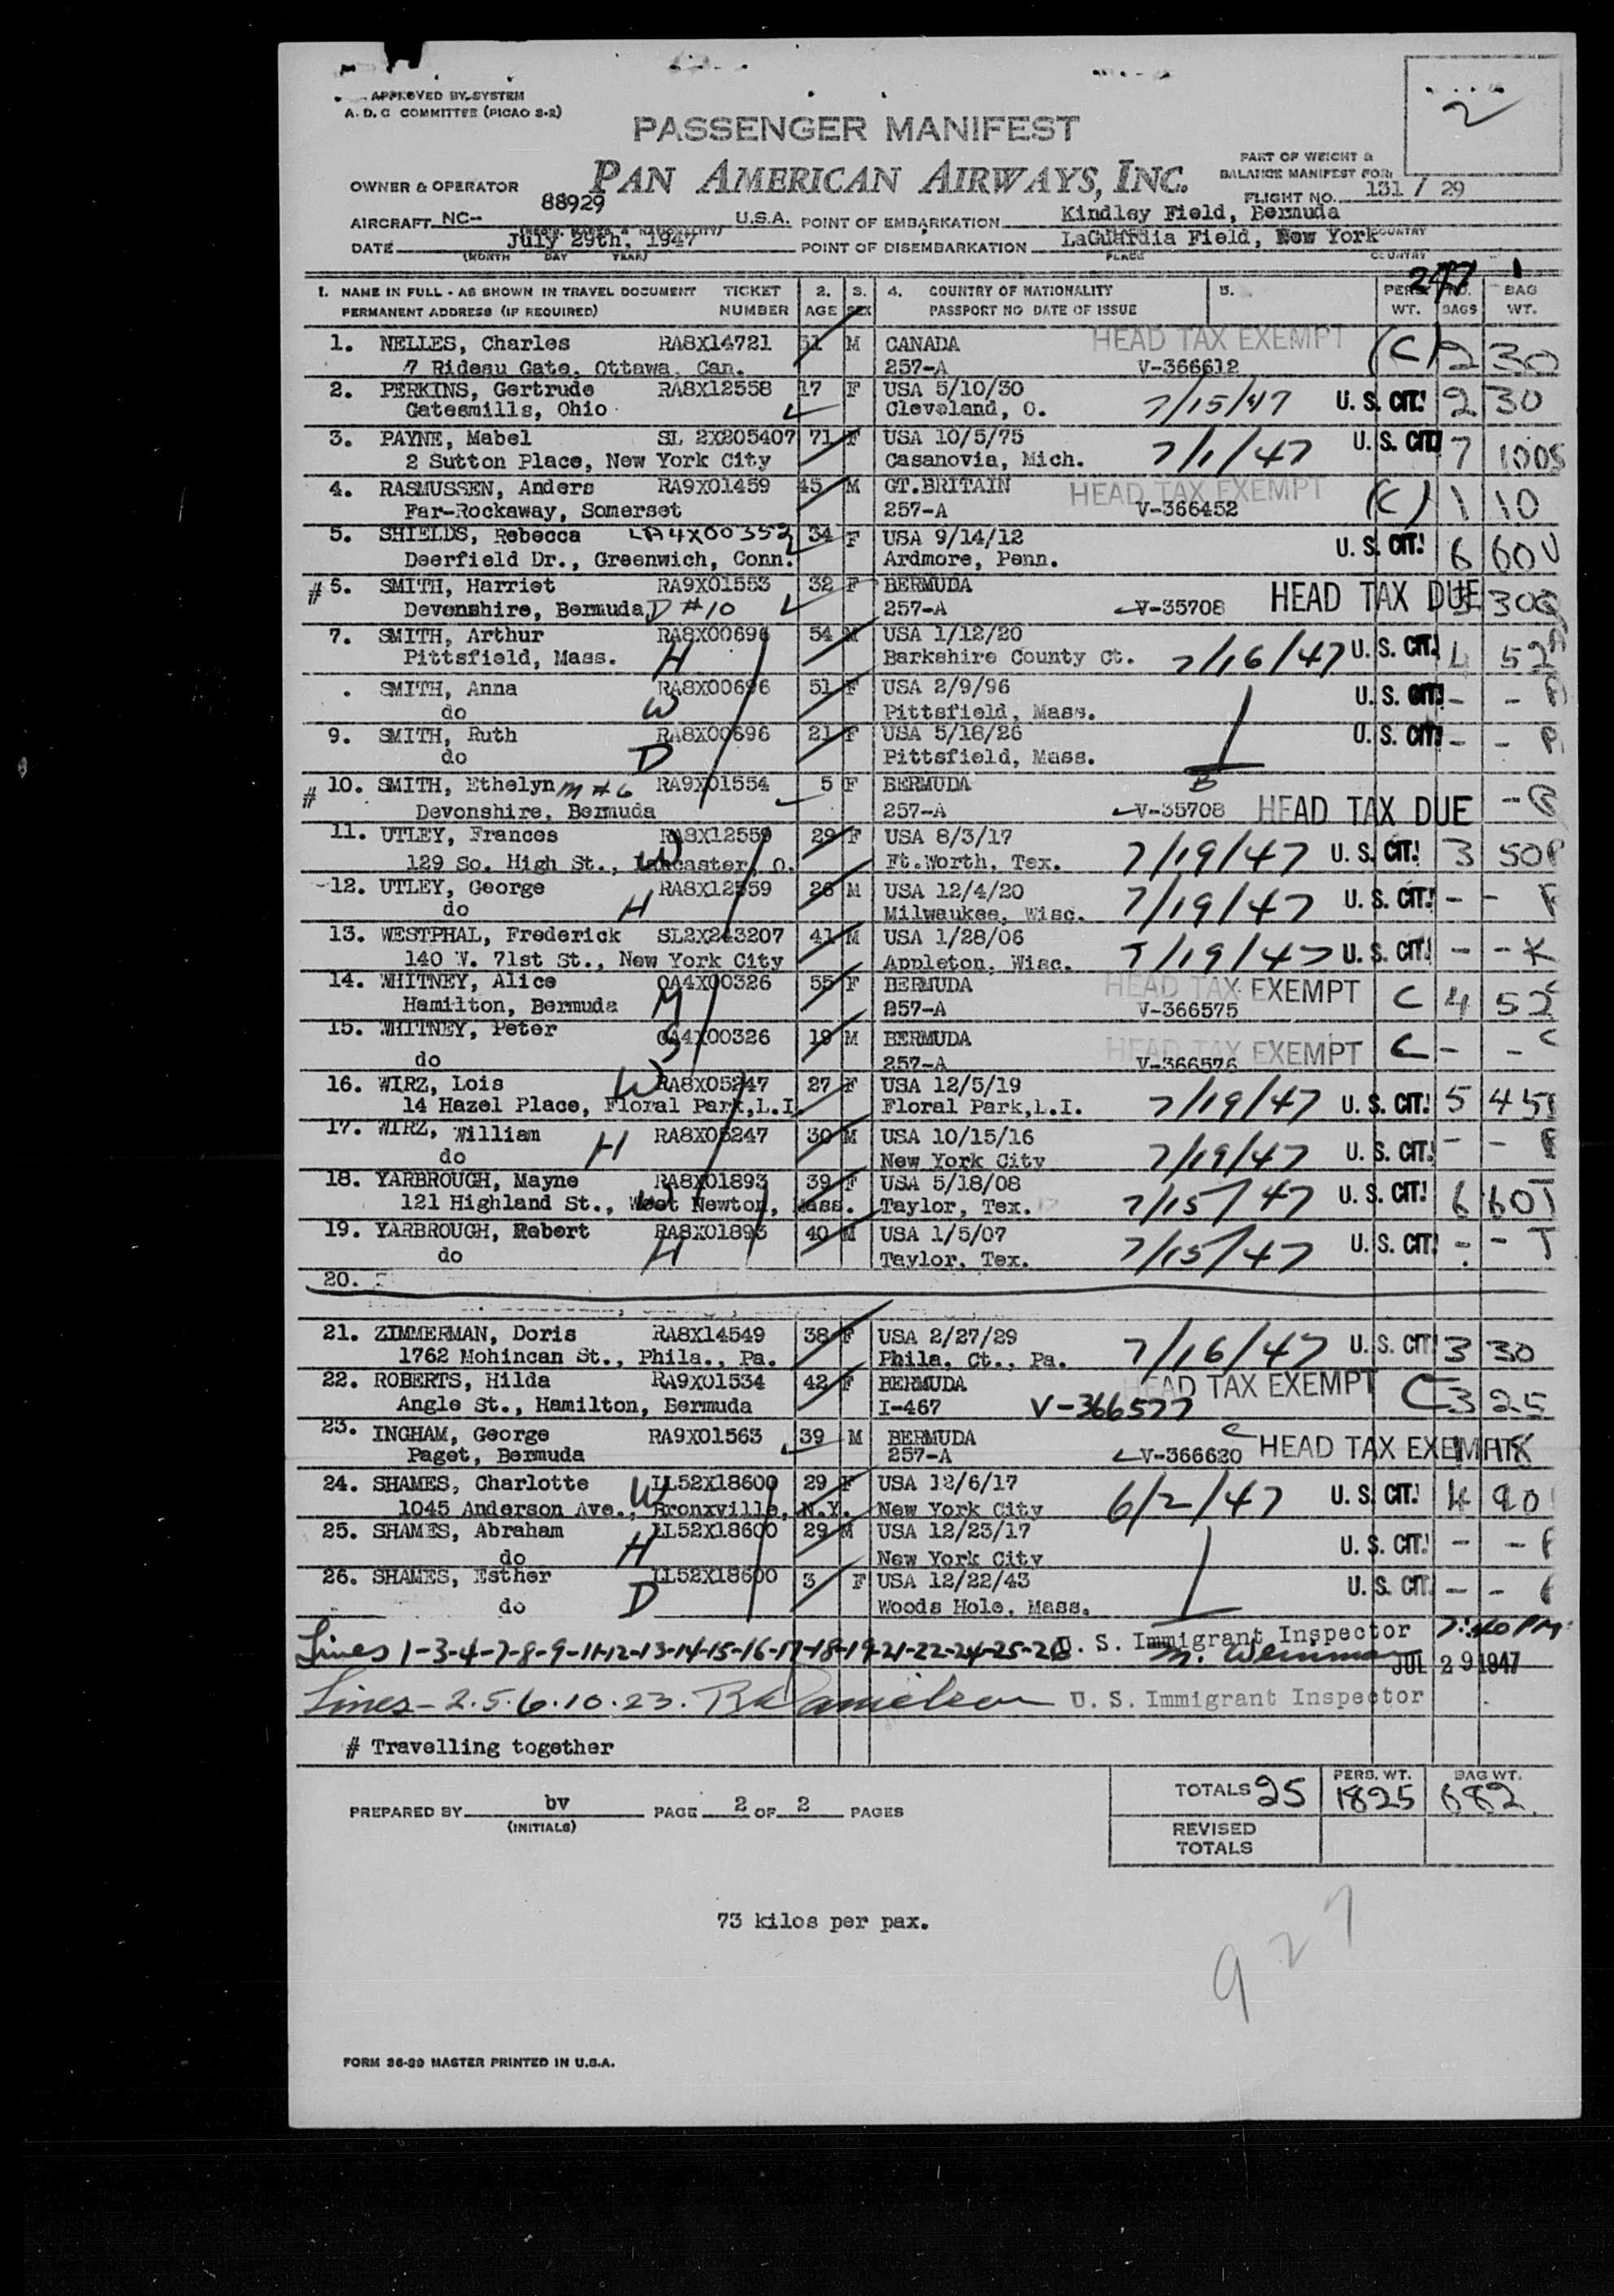 APPROVED BY SYSTEM
A. D. C COMMITTEE (PICAO 3-2)
2
PASSENGER MANIFEST
PAN AMERICAN AIRWAYS, INC.
PART OF WEIGHT &
BALANCE MANIFEST FOR:
OWNER & OPERATOR
FLIGHT NO. 131 / 29
AIRCRAFT NC- 88929 U.S.A. POINT OF EMBARKATION Kindley Field, Bermuda
DATE July 29th, 1947 POINT OF DISEMBARKATION LaGuardia Field, New York
(MONTH DAY YEAR) PLACE COUNTRY
247 1
1. NAME IN FULL - AS SHOWN IN TRAVEL DOCUMENT TICKET 2. 3. 4. COUNTRY OF NATIONALITY 5. PERS. NO. BAG
PERMANENT ADDRESS (IF REQUIRED) NUMBER AGE SEX PASSPORT NO DATE OF ISSUE WT. BAGS WT.
1. NELLES, Charles RA8X14721 51 M CANADA HEAD TAX EXEMPT (C) 2 30
7 Rideau Gate, Ottawa, Can. 257-A V-366612
2. PERKINS, Gertrude RA8X12558 17 F USA 5/10/30 7/15/47 U. S. CIT. 2 30
Gatesmills, Ohio Cleveland, O.
3. PAYNE, Mabel SL 2X205407 71 F USA 10/5/75 7/1/47 U. S. CIT. 7 100S
2 Sutton Place, New York City Casanovia, Mich.
4. RASMUSSEN, Anders RA9X01459 45 M GT.BRITAIN HEAD TAX EXEMPT (C) 1 10
Far-Rockaway, Somerset 257-A V-366452
5. SHIELDS, Rebecca LA4X00352 34 F USA 9/14/12 U. S. CIT. 6 60U
Deerfield Dr., Greenwich, Conn. Ardmore, Penn.
# 6. SMITH, Harriet RA9X01553 32 F BERMUDA HEAD TAX DUE 30
Devonshire, Bermuda D #10 257-A V-35708
7. SMITH, Arthur RA8X00696 54 M USA 1/12/20 7/16/47 U. S. CIT. 4 52
Pittsfield, Mass. H Barkshire County Ct.
. SMITH, Anna RA8X00696 51 F USA 2/9/96 U. S. CIT. - -
do W Pittsfield, Mass.
9. SMITH, Ruth RA8X00696 21 F USA 5/18/26 U. S. CIT. - - P
do D Pittsfield, Mass.
# 10. SMITH, Ethelyn M #6 RA9X01554 5 F BERMUDA B -
Devonshire, Bermuda 257-A V-35708 HEAD TAX DUE
11. UTLEY, Frances RA8X12559 29 F USA 8/3/17 7/19/47 U. S. CIT. 3 50P
129 So. High St., Lancaster, O. W Ft.Worth, Tex.
12. UTLEY, George RA8X12559 26 M USA 12/4/20 7/19/47 U. S. CIT. - -
do H Milwaukee, Wisc.
13. WESTPHAL, Frederick SL2X243207 41 M USA 1/28/06 7/19/47 U. S. CIT. - - K
140 W. 71st St., New York City Appleton, Wisc.
14. WHITNEY, Alice OA4X00326 55 F BERMUDA HEAD TAX EXEMPT C 4 52
Hamilton, Bermuda M 257-A V-366575
15. WHITNEY, Peter OA4X00326 19 M BERMUDA HEAD TAX EXEMPT C - - C
do S 257-A V-366576
16. WIRZ, Lois W RA8X05247 27 F USA 12/5/19 7/19/47 U. S. CIT. 5 45
14 Hazel Place, Floral Park,L.I Floral Park,L.I.
17. WIRZ, William H RA8X05247 30 M USA 10/15/16 7/19/47 U. S. CIT. - -
do New York City
18. YARBROUGH, Mayne RA8X01893 39 F USA 5/18/08 7/15/47 U. S. CIT. 6 60T
121 Highland St., West Newton, Mass. W Taylor, Tex.
19. YARBROUGH, Robert RA8X01893 40 M USA 1/5/07 7/15/47 U. S. CIT. - - T
do H Taylor, Tex.
20.
21. ZIMMERMAN, Doris RA8X14549 38 F USA 2/27/29 7/16/47 U. S. CIT 3 30
1762 Mohincan St., Phila., Pa. Phila. Ct., Pa.
22. ROBERTS, Hilda RA9X01534 42 F BERMUDA HEAD TAX EXEMPT C 3 25
Angle St., Hamilton, Bermuda I-467 V-366577
23. INGHAM, George RA9X01563 39 M BERMUDA C HEAD TAX EXEMPT
Paget, Bermuda 257-A V-366620
24. SHAMES, Charlotte W LL52X18600 29 F USA 12/6/17 6/2/47 U. S. CIT. 4 90
1045 Anderson Ave., Bronxville, N.Y. New York City
25. SHAMES, Abraham H LL52X18600 29 M USA 12/23/17 U. S. CIT. - -
do New York City
26. SHAMES, Esther LL52X18600 3 F USA 12/22/43 U. S. CIT. - -
do D Woods Hole, Mass.
Lines 1-3-4-7-8-9-11-12-13-14-15-16-17-18-19-21-22-24-25-26 U. S. Immigrant Inspector 7:40 PM
JUL 29 1947
Lines - 2.5.6.10.23. U. S. Immigrant Inspector
# Travelling together
PREPARED BY bv PAGE 2 OF 2 PAGES
(INITIALS)
TOTALS 25 PERS. WT. 1825 BAG WT. 682
REVISED
TOTALS
73 kilos per pax.
927
FORM 36-89 MASTER PRINTED IN U.S.A.